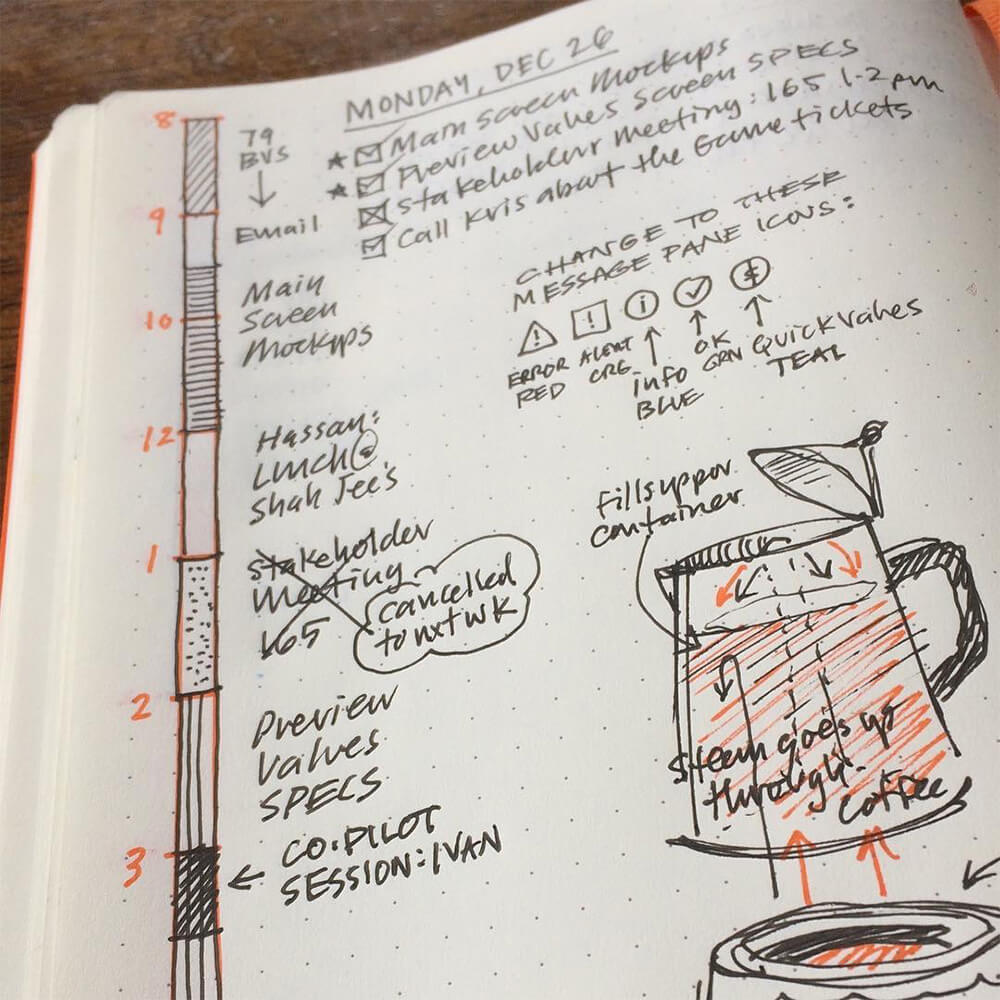 MONDAY, DEC 26
★ ☑ Main Screen Mockups
★ ☑ Preview Values Screen SPECS
☒ Stakeholder Meeting: 165 1-2pm
☑ Call Kris about the Game tickets
8
79
BVS
↓
9
Email
Main
Screen
10
Mockups
12
Hassan:
Lunch @
Shah Jee's
1
Stakeholder
Meeting
165
cancelled
to nxt wk
2
Preview
Values
SPECS
3
← CO-PILOT
SESSION: IVAN
CHANGE TO THESE
MESSAGE PANE ICONS:
ERROR
RED
ALERT
ORG
info
BLUE
OK
GRN
Quick Values
TEAL
Fills upper
container
Steam goes up
through
coffee